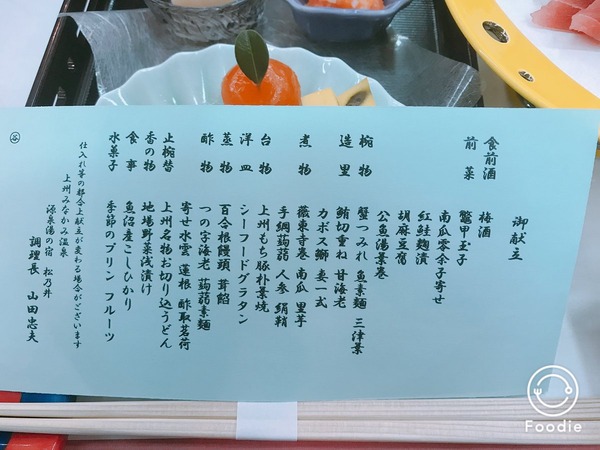 御献立
食前酒 梅酒
前菜 鼈甲玉子
南瓜零余子寄せ
紅鮭麹漬
胡麻豆腐
公魚湯葉巻
椀物 蟹つみれ 魚素麺 三津葉
造里 鮪切重ね 甘海老
カボス鰤 妻一式
煮物 薇東寺巻 南瓜 里芋
手綱蒟蒻 人参 絹鞘
台物 上州もち豚朴葉焼
洋皿 シーフードグラタン
蒸物 百合根饅頭 茸餡
酢物 つの字海老 蒟蒻素麺
寄せ水雲 蓮根 酢取茗荷
止椀替 上州名物お切り込うどん
香の物 地場野菜浅漬け
食事 魚沼産こしひかり
水菓子 季節のプリン フルーツ
仕入れ等の都合上献立が変わる場合がございます
上州みなかみ温泉
源泉湯の宿 松乃井
調理長 山田忠夫
Foodie